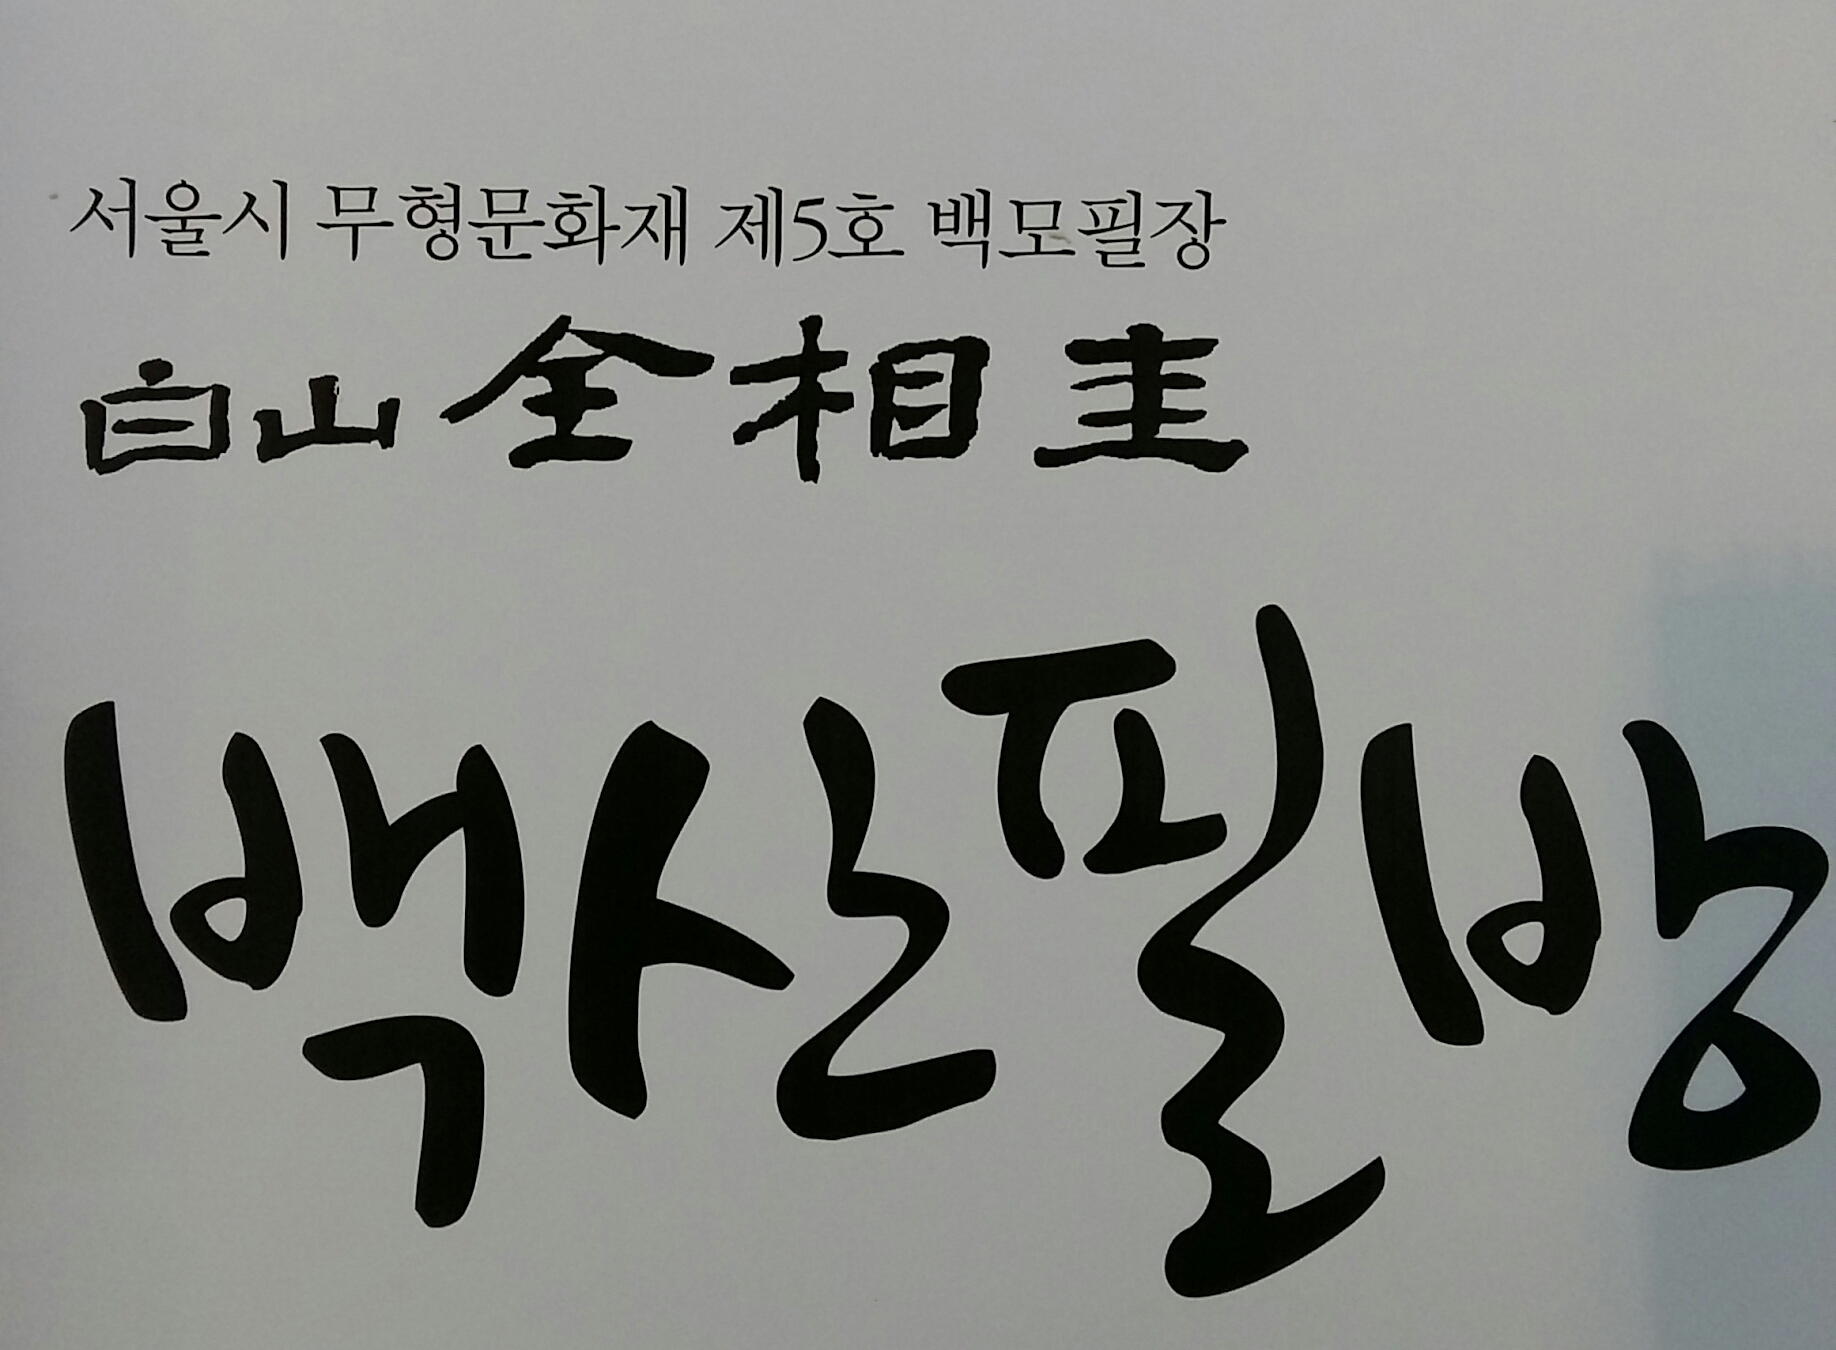 서울시 무형문화재 제5호 백모필장
白山 全相圭
백산필방